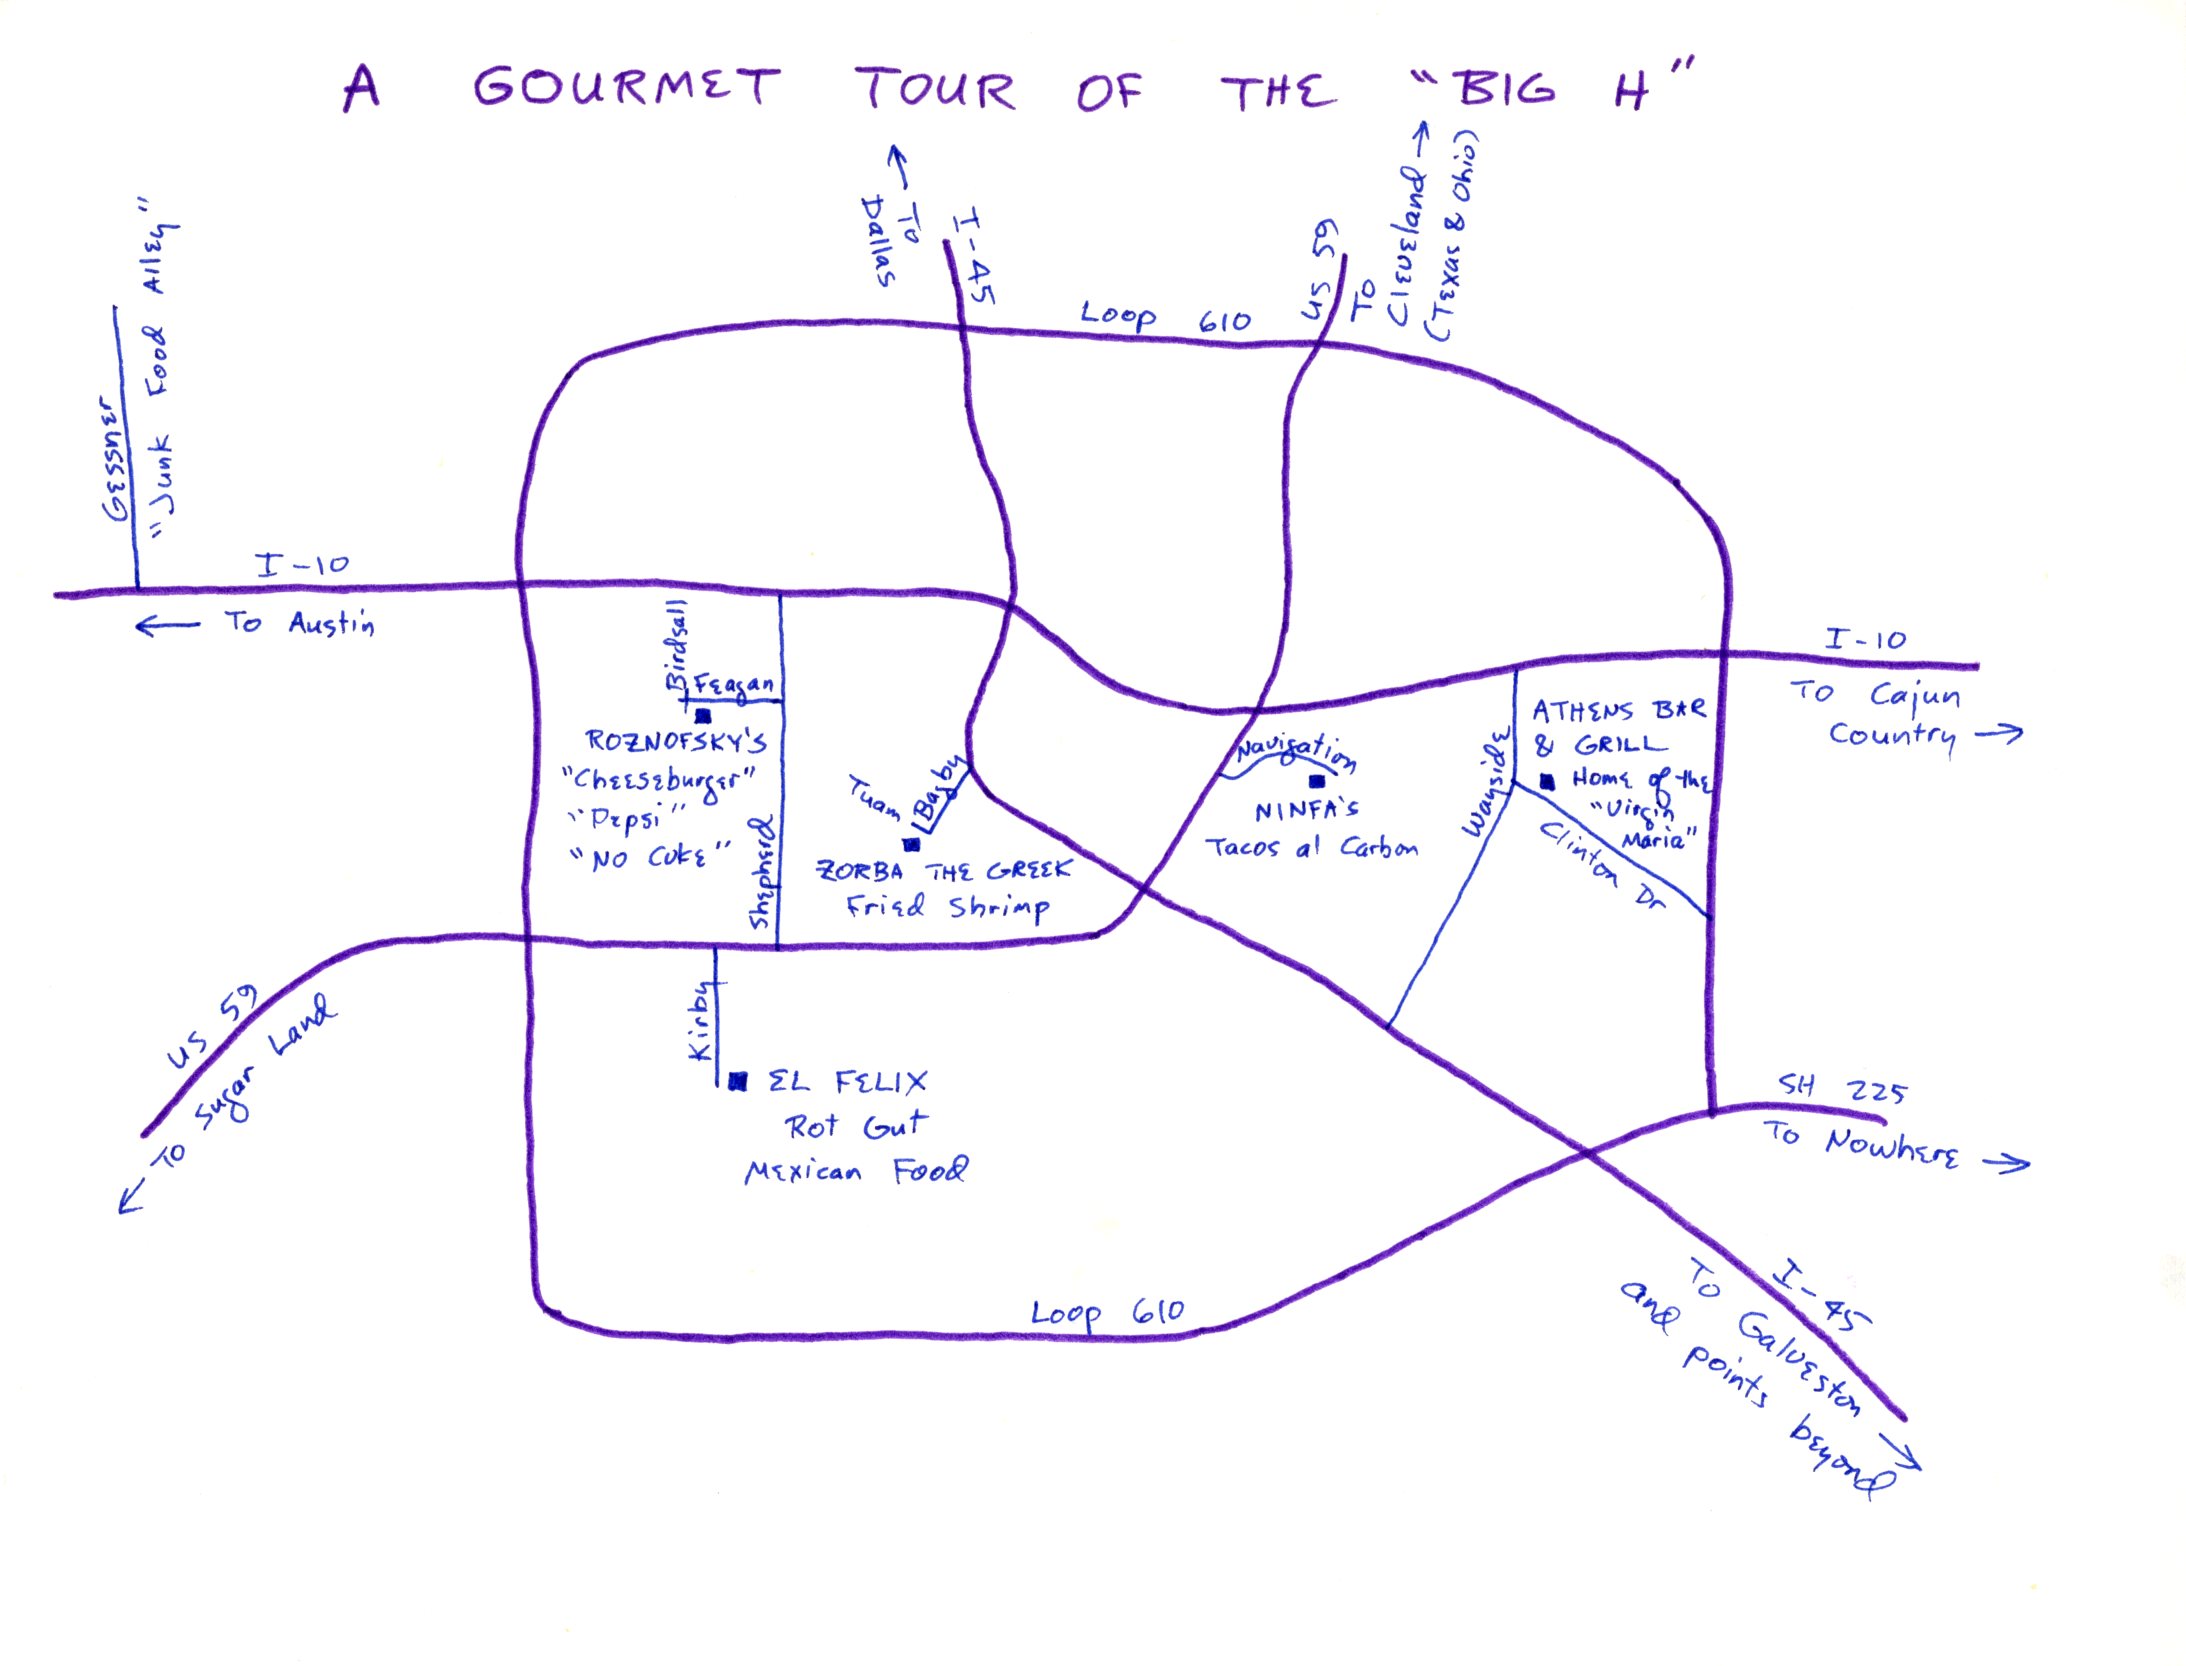 A GOURMET TOUR OF THE "BIG H"
← To
Dallas
I-45
US 59
To
Cleveland →
(Texas & Ohio)
Loop 610
Gessner
"Junk Food Alley"
I-10
← To Austin
Birdsall
Feagan
ROZNOFSKY'S
"Cheeseburger"
"Pepsi"
"No Coke"
Shepherd
Tuam
Bagby
ZORBA THE GREEK
Fried Shrimp
Navigation
NINFA'S
Tacos al Carbon
Wayside
ATHENS BAR
& GRILL
Home of the
"Virgin
Maria"
Clinton Dr
I-10
To Cajun
Country →
US 59
← To Sugar Land
Kirby
EL FELIX
Rot Gut
Mexican Food
SH 225
To Nowhere →
Loop 610
I-45
To Galveston →
and points beyond